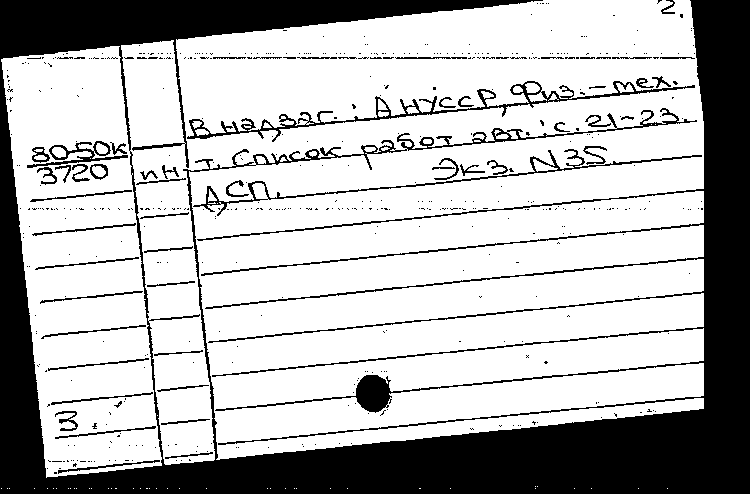 2.
В надзаг.: АНУССР, Физ.-мех.
80-50К
ин-т. Список работ авт.: с. 21-23.
3720
ДСП. Экз. N35.
3.